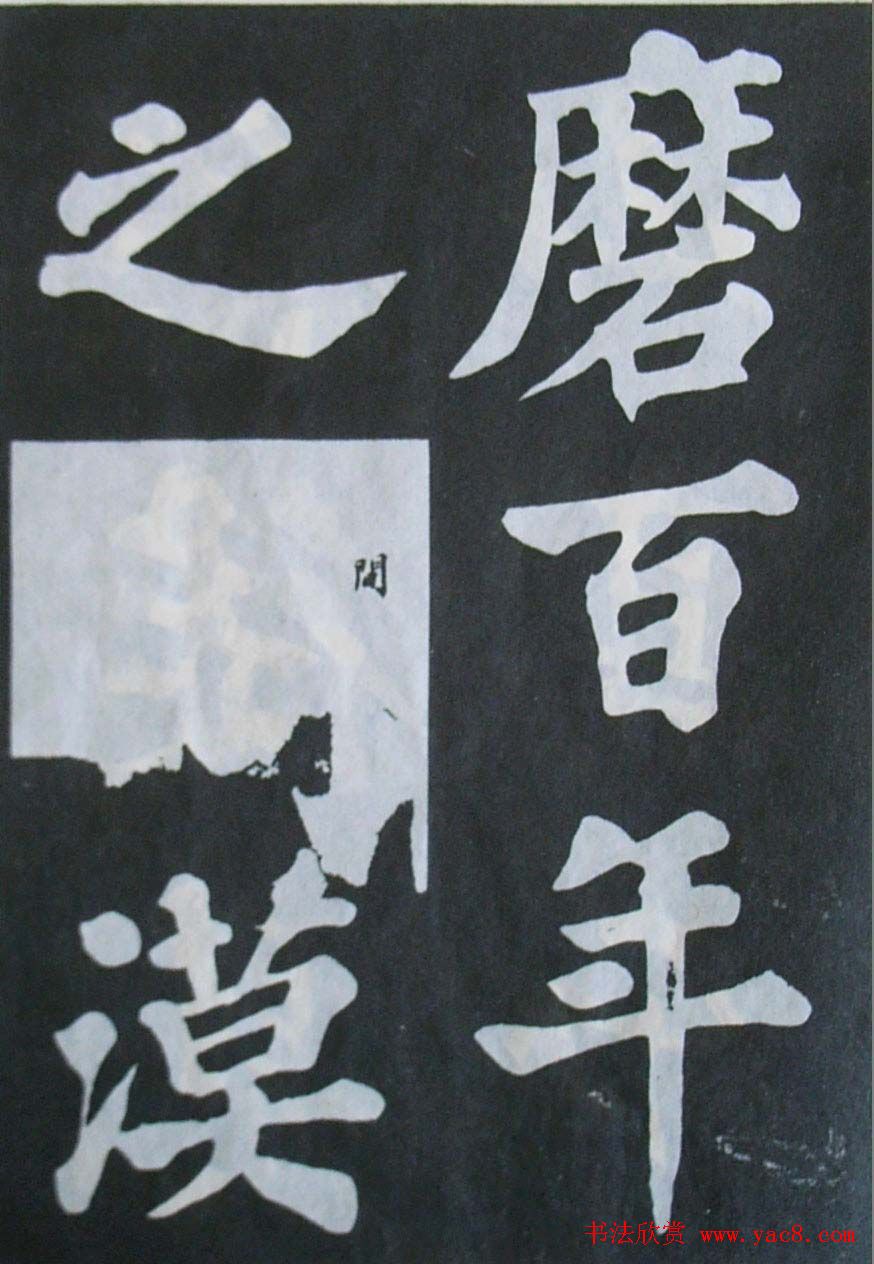 磨百年
之間漠
书法欣赏 www.yac8.com